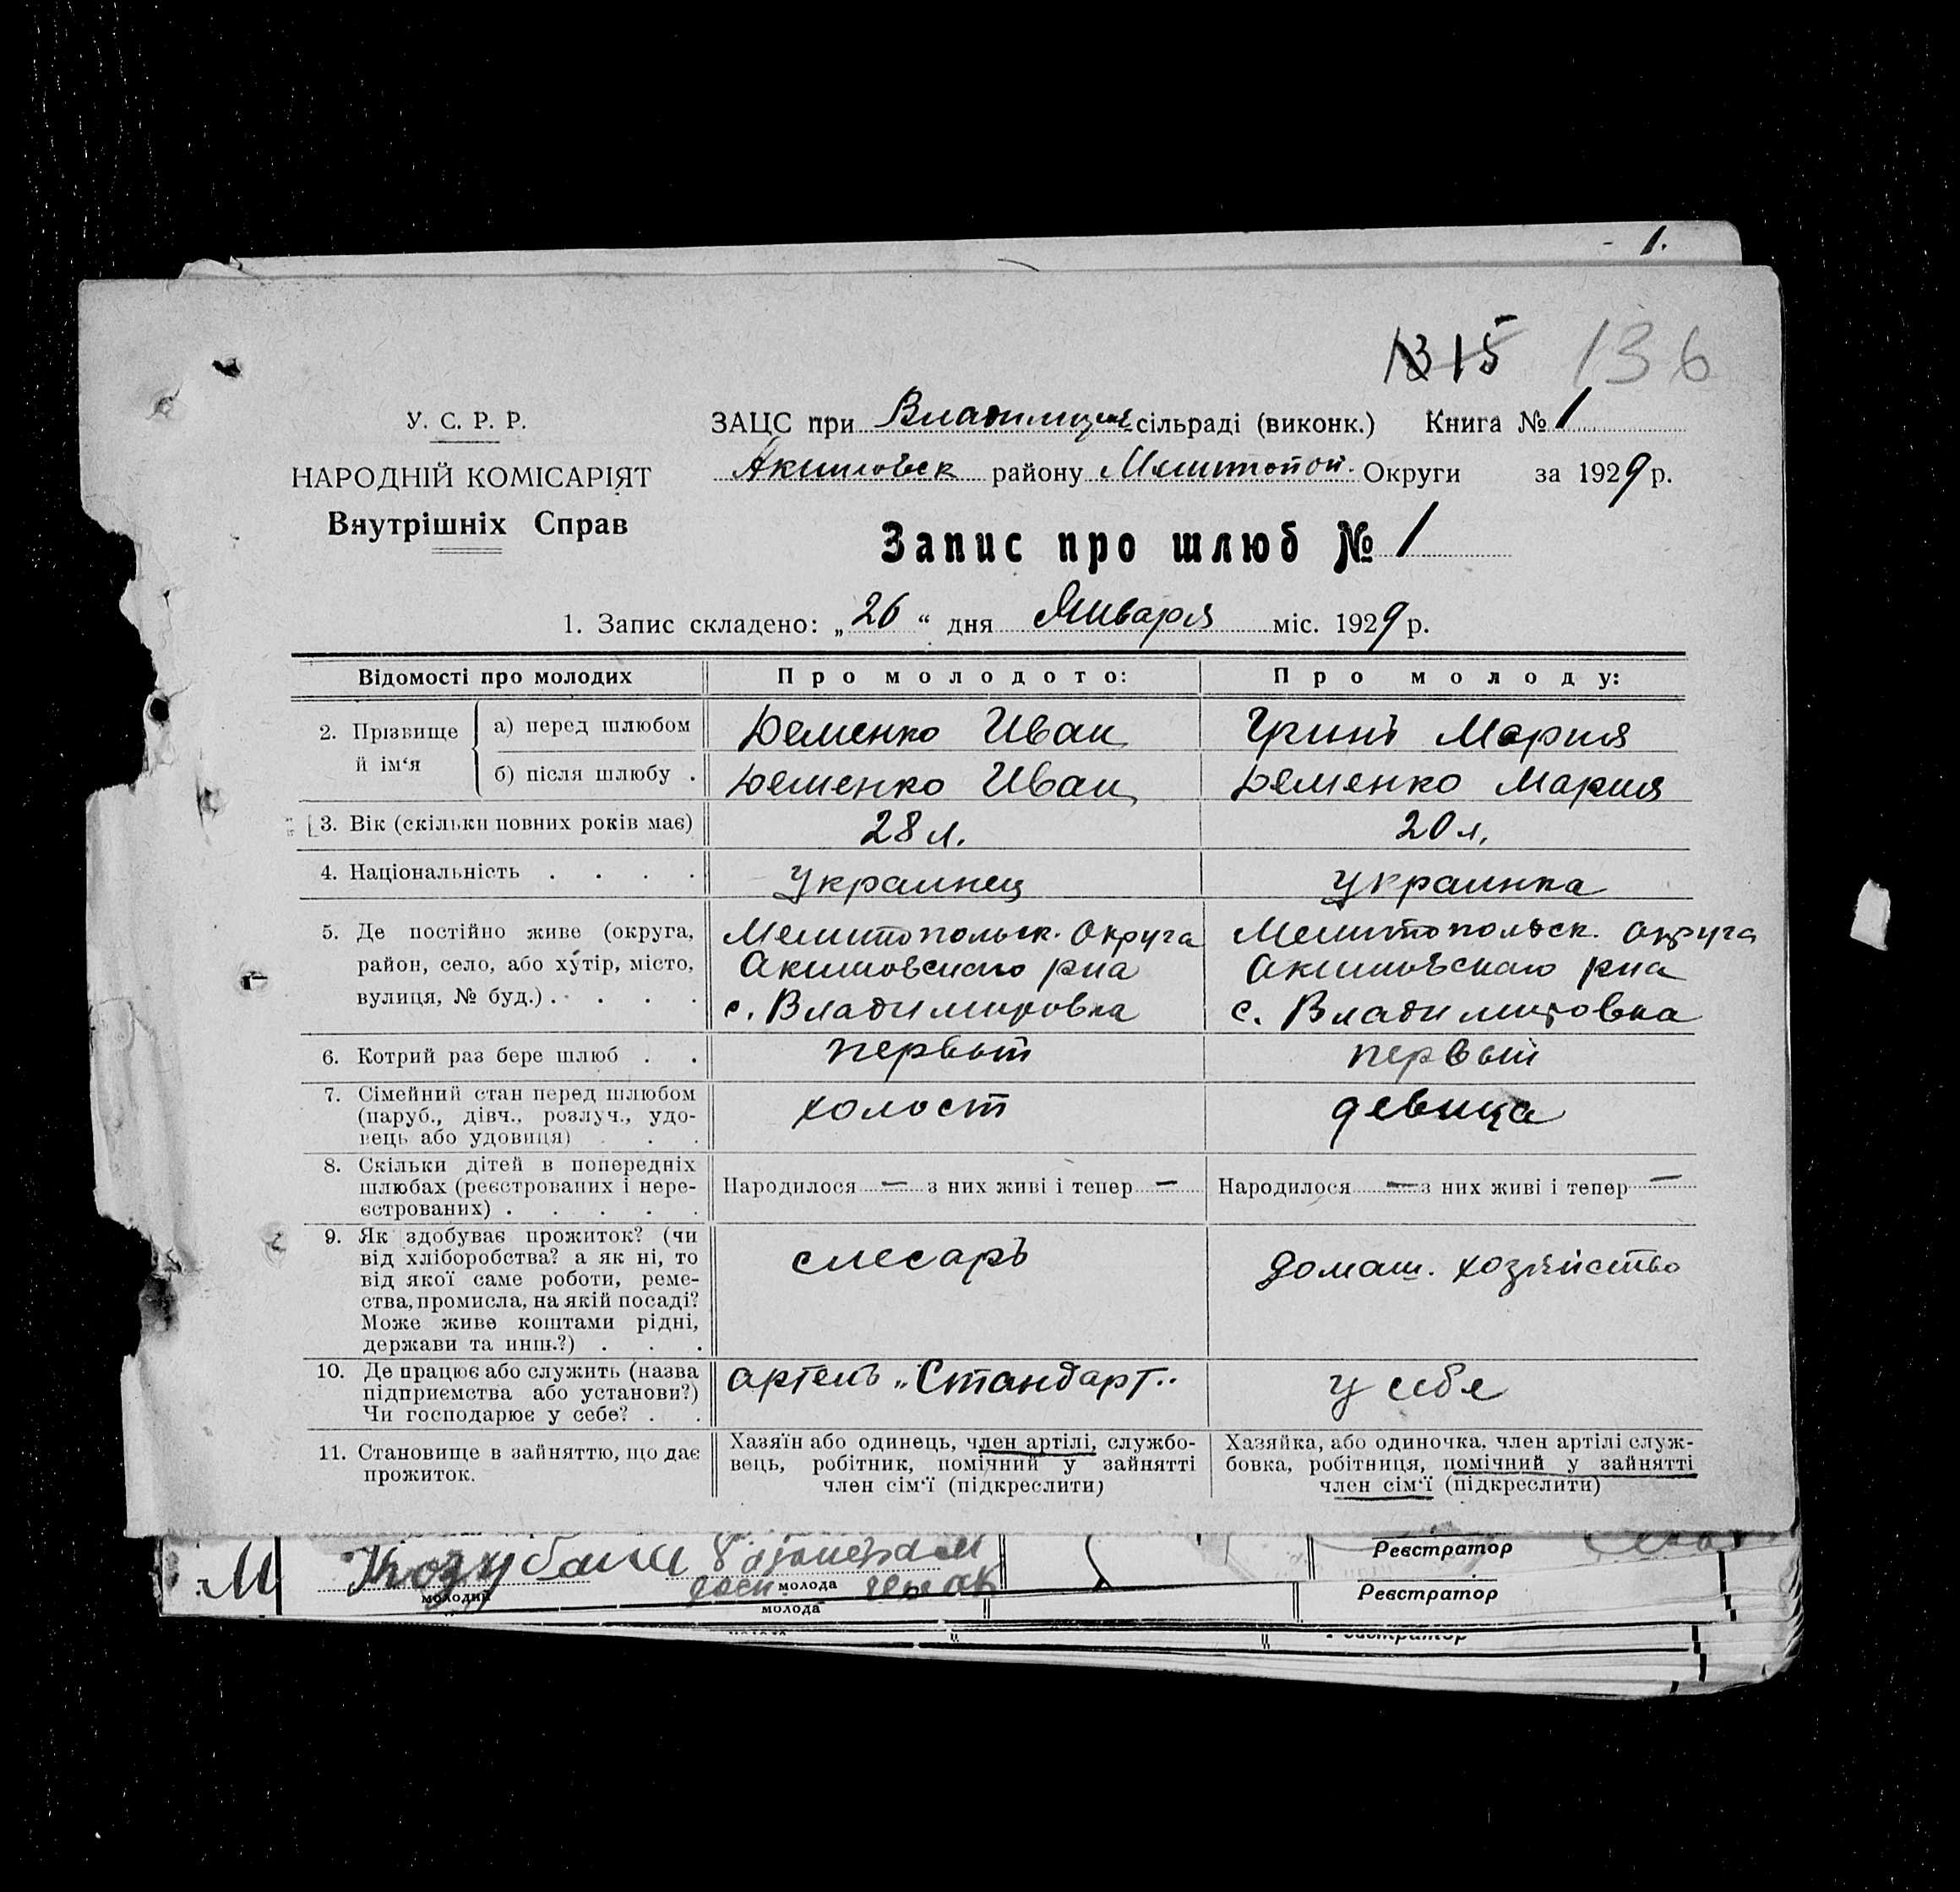 1.
1315 136
У. С. Р. Р.
НАРОДНІЙ КОМІСАРІЯТ
Внутрішніх Справ
ЗАЦС при сільраді (виконк.) Книга № 1
Акимовск району Округи за 1929 р.
Запис про шлюб № 1
1. Запис складено: „26“ дня Января міс. 1929 р.
Відомості про молодих
Про молодого:
Про молоду:
2. Прізвище й ім‘я
а) перед шлюбом
Деменко Иван
Гринь Мария
б) після шлюбу .
Деменко Иван
Деменко Мария
3. Вік (скільки повних років має)
28 л.
20 л.
4. Національність . . . .
Украинец
Украинка
5. Де постійно живе (округа,
район, село, або хутір, місто,
вулиця, № буд.) . . . . .
Мелитопольск. Округа
Акимовского р-на
с. Владимировка
Мелитопольск. Округа
Акимовского р-на
с. Владимировка
6. Котрий раз бере шлюб . .
первый
первый
7. Сімейний стан перед шлюбом
(паруб., дівч., розлуч., удо-
вець або удовиця) . . .
холост
девица
8. Скільки дітей в попередніх
шлюбах (реєстрованих і нере-
єстрованих) . . . . .
Народилося — з них живі і тепер —
Народилося — з них живі і тепер —
9. Як здобуває прожиток? (чи
від хліборобства? а як ні, то
від якої саме роботи, реме-
ства, промисла, на якій посаді?
Може живе коштами рідні,
держави та инш.?) . . .
слесарь
домаш. хозяйство
10. Де працює або служить (назва
підприємства або установи?)
Чи господарює у себе? . .
артель „Стандарт„
у себя
11. Становище в зайняттю, що дає
прожиток.
Хазяїн або одинець, член артілі, службо-
вець, робітник, помічний у зайнятті
член сім‘ї (підкреслити)
Хазяйка, або одиночка, член артілі служ-
бовка, робітниця, помічний у зайнятті
член сім‘ї (підкреслити)
М
молодий
молода
Реєстратор
молода
Реєстратор